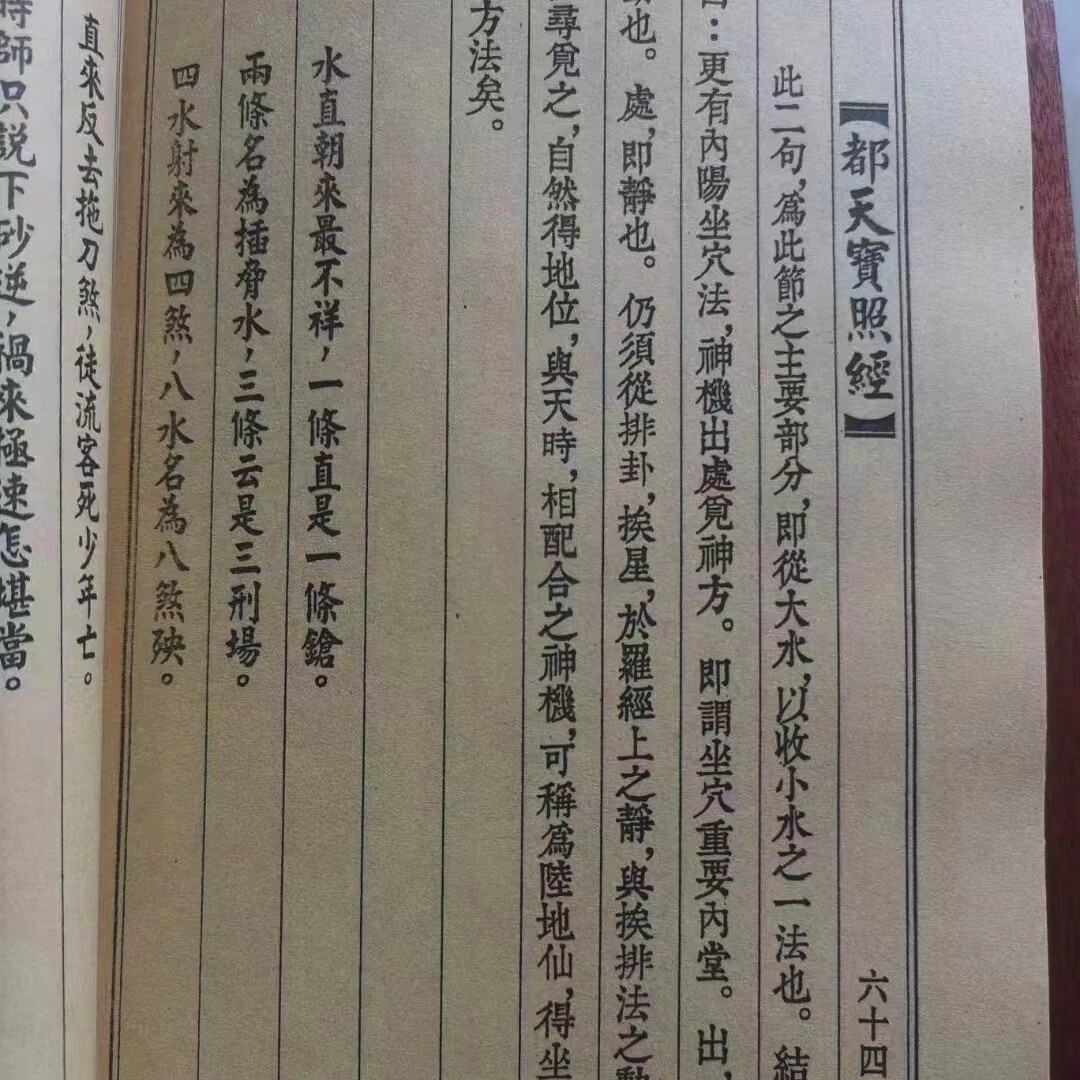 【都天寶照經】 六十四
此二句，爲此節之主要部分，即從大水，以收小水之一法也。結
：更有內陽坐穴法，神機出處覓神方。即謂坐穴重要內堂。出，
也。處，即靜也。仍須從排卦，挨星，於羅經上之靜，與挨排法之動
尋覓之，自然得地位，與天時，相配合之神機，可稱爲陸地仙，得坐
方法矣。
水直朝來最不祥，一條直是一條鎗。
兩條名為插脅水，三條云是三刑場。
四水射來為四煞，八水名為八煞殃。
直來反去拖刀煞，徒流客死少年亡。
時師只説下砂逆，禍來極速怎堪當。